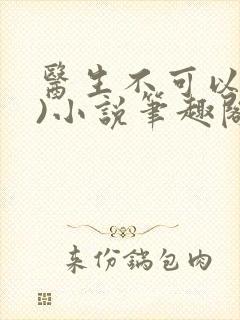 醫生不可以
)小說筆趣閣
来份鍋包肉